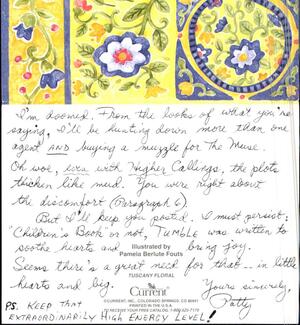 I'm doomed. From the looks of what you're
saying, I'll be hunting down more than one
agent AND buying a muzzle for The Muse.
Oh woe, even with Higher Callings, the plots
thicken like mud. You were right about
the discomfort (Paragraph 6).
But I'll keep you posted. I must persist:
"Children's Book" or not, TUMBLE was written to
soothe hearts and bring joy.
Illustrated by
Pamela Berlute Fouts
TUSCANY FLORAL
Seems there's a great need for that -- in little
hearts and big.
Current
Yours sincerely,
Patty
©CURRENT, INC., COLORADO SPRINGS, CO 80941
PRINTED IN THE U.S.A.
TO RECEIVE YOUR FREE CATALOG, 1-800-525-7170
PS. KEEP THAT
EXTRAORDINARILY HIGH ENERGY LEVEL!